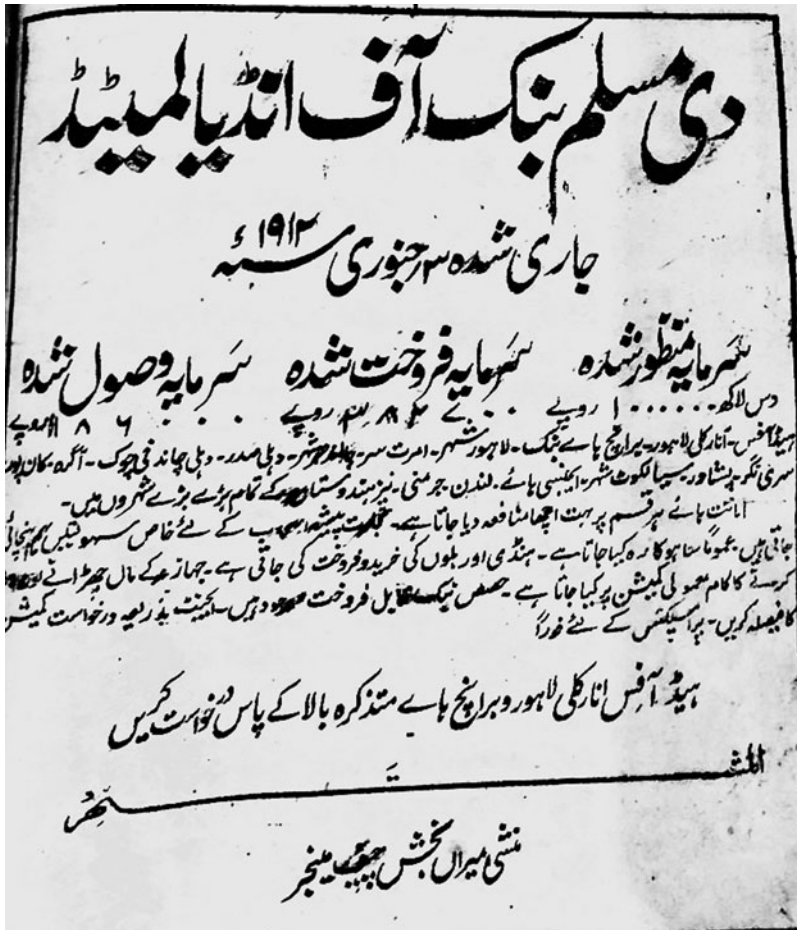 دی مسلم بنک آف انڈیا لمیٹڈ
جاری شدہ ۳ جنوری سنہ ۱۹۱۲ء
سرمایہ منظور شدہ سرمایہ فروخت شدہ سرمایہ وصول شدہ
دس لاکھ ۱۰۰۰۰۰۰ روپے روپے روپے
ہیڈ آفس۔ انارکلی لاہور۔ برانچ ہاے بنک۔ لاہور شہر۔ امرت سر۔ شہر۔ دہلی صدر۔ دہلی چاندنی چوک۔ آگرہ۔ کان پور
سری نگر۔ پشاور۔ سیالکوٹ شہر۔ ایجنسی ہائے۔ لندن۔ جرمنی۔ نیز ہندوستان کے تمام بڑے بڑے شہروں میں۔
امانت ہائے ہر قسم پر بہت اچھا منافعہ دیا جاتا ہے۔ تجارت پیشہ کے لئے خاص سہولتیں بہم پہنچائی
جاتی ہیں۔ عموماً ساہوکارہ کیا جاتا ہے۔ ہنڈی اور بلوں کی خرید و فروخت کی جاتی ہے۔ جہاز کے مال چھڑانے
کرنے کا کام معمولی کمیشن پر کیا جاتا ہے۔ حصص بنک قابل فروخت موجود ہیں۔ ایجنٹ بذریعہ درخواست کمیشن
کا فیصلہ کریں۔ پراسپکٹس کے لئے فوراً
ہیڈ آفس انارکلی لاہور و برانچ ہاے متذکرہ بالا کے پاس درخواست کریں
المشتہر
منشی میراں بخش چیف مینجر